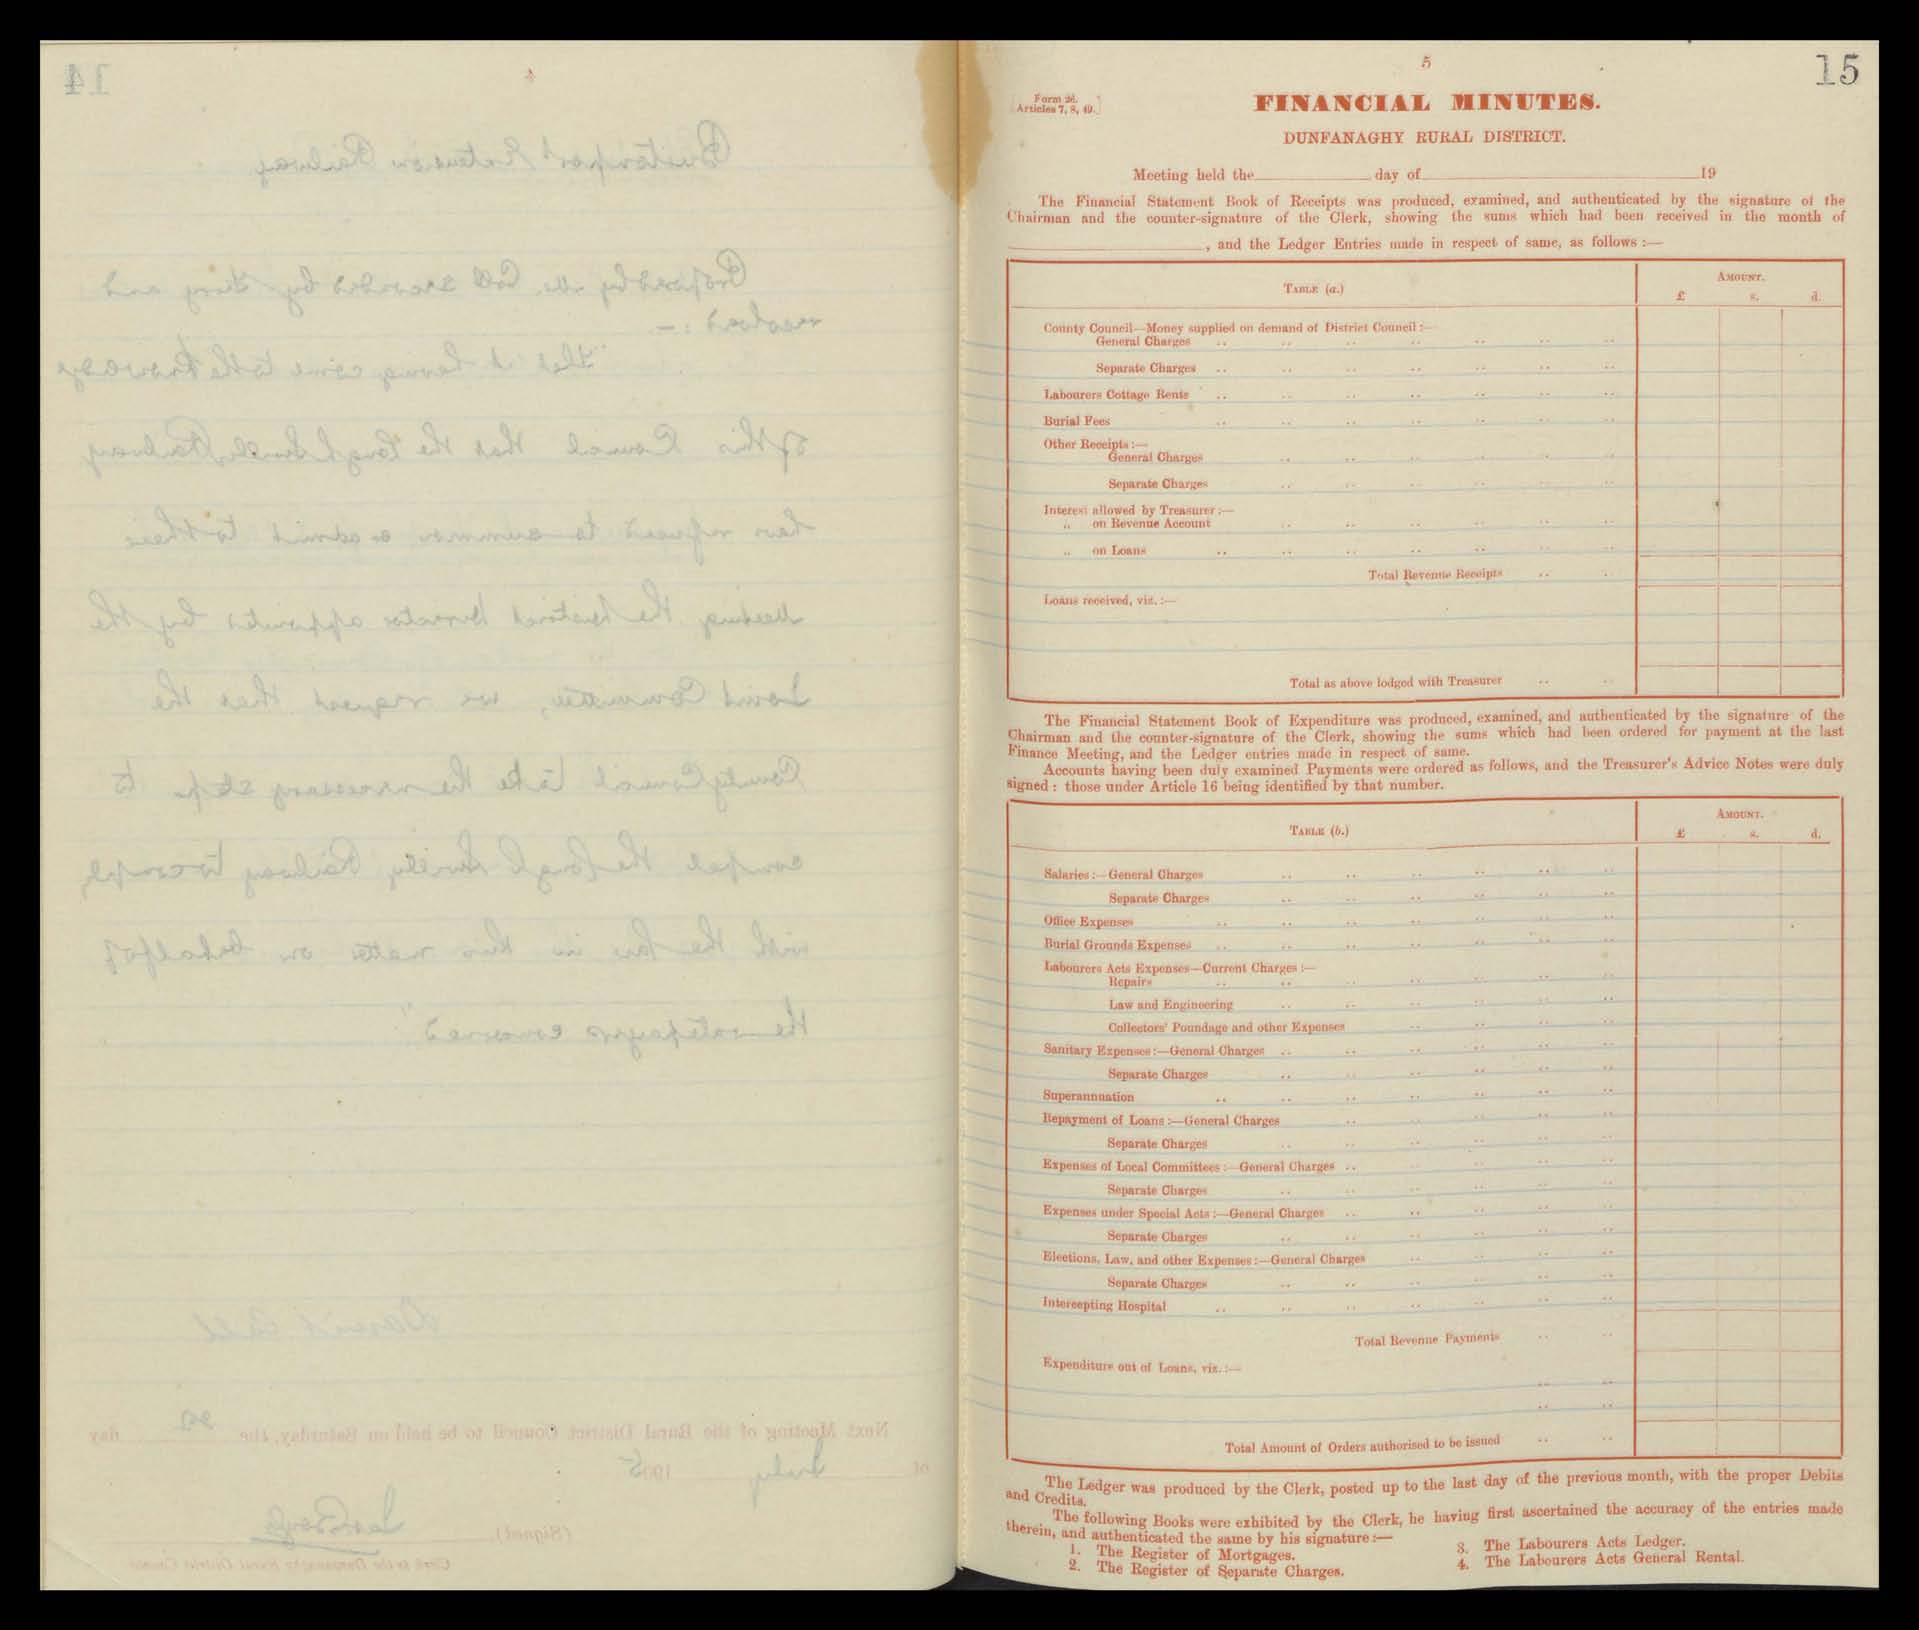 14
4
Burtonport Extension Railway
Proposed by Mr. Coll seconded by and
resolved :-
"That it having come to the knowledge
of this Council that the Lough Swilly Railway
has refused to summon or admit to their
meeting the District Director appointed by the
Joint Committee, we request that the
County Council take the necessary steps to
compel the Lough Swilly Railway to comply
with the law in this matter on behalf of
the ratepayers concerned."
Next Meeting of the Rural District Council to be held on Saturday, the 22 day
of July 1905
(Signed)
Clerk to the Dunfanaghy Rural District Council
5
15
Form 2d.
Articles 7, 8, 49.
FINANCIAL MINUTES.
DUNFANAGHY RURAL DISTRICT.
Meeting held the day of 19
The Financial Statement Book of Receipts was produced, examined, and authenticated by the signature of the
Chairman and the counter-signature of the Clerk, showing the sums which had been received in the month of
, and the Ledger Entries made in respect of same, as follows :—
TABLE (a.)
AMOUNT.
£ s. d.
County Council—Money supplied on demand of District Council :—
General Charges
Separate Charges
Labourers Cottage Rents
Burial Fees
Other Receipts :—
General Charges
Separate Charges
Interest allowed by Treasurer :—
„ on Revenue Account
„ on Loans
Total Revenue Receipts
Loans received, viz. :—
Total as above lodged with Treasurer
The Financial Statement Book of Expenditure was produced, examined, and authenticated by the signature of the
Chairman and the counter-signature of the Clerk, showing the sums which had been ordered for payment at the last
Finance Meeting, and the Ledger entries made in respect of same.
Accounts having been duly examined Payments were ordered as follows, and the Treasurer's Advice Notes were duly
signed : those under Article 16 being identified by that number.
TABLE (b.)
AMOUNT.
£ s. d.
Salaries :—General Charges
Separate Charges
Office Expenses
Burial Grounds Expenses
Labourers Acts Expenses—Current Charges :—
Repairs
Law and Engineering
Collectors' Poundage and other Expenses
Sanitary Expenses :—General Charges
Separate Charges
Superannuation
Repayment of Loans :—General Charges
Separate Charges
Expenses of Local Committees :—General Charges
Separate Charges
Expenses under Special Acts :—General Charges
Separate Charges
Elections, Law, and other Expenses :—General Charges
Separate Charges
Intercepting Hospital
Total Revenue Payments
Expenditure out of Loans, viz. :—
Total Amount of Orders authorised to be issued
The Ledger was produced by the Clerk, posted up to the last day of the previous month, with the proper Debits
and Credits.
The following Books were exhibited by the Clerk, he having first ascertained the accuracy of the entries made
therein, and authenticated the same by his signature :—
1. The Register of Mortgages.
2. The Register of Separate Charges.
3. The Labourers Acts Ledger.
4. The Labourers Acts General Rental.